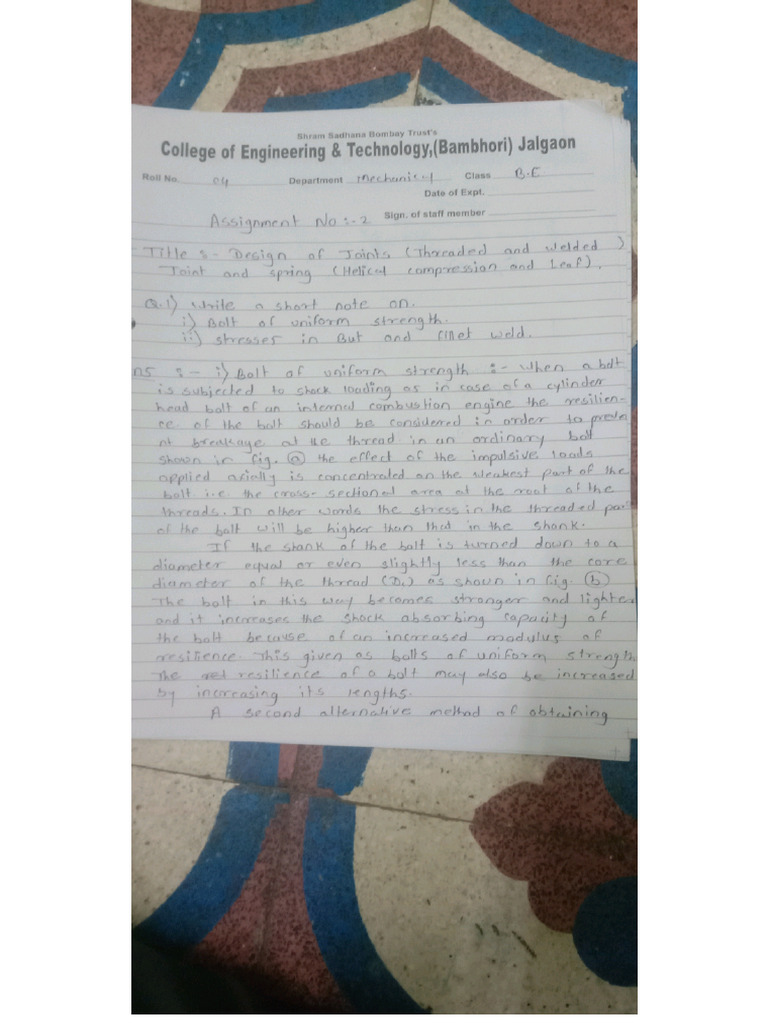 Shram Sadhana Bombay Trust's
College of Engineering & Technology,(Bambhori) Jalgaon
Roll No. 04 Department Mechanical Class B.E
Date of Expt.
Assignment No :- 2 Sign. of staff member
Title :- Design of Joints (Threaded and welded)
Joint and spring (Helical compression and Leaf).
Q.1) Write a short note on.
i) Bolt of uniform strength.
ii) stresses in But and fillet weld.
ns :- i) Bolt of uniform strength :- when a bolt
is subjected to shock loading as in case of a cylinder
head bolt of an internal combustion engine the resilien-
ce of the bolt should be considered in order to preve
nt breakage at the thread in an ordinary bolt
shown in fig. (a) the effect of the impulsive loads
applied axially is concentrated on the weakest part of the
bolt i.e. the cross-sectional area at the root of the
threads. In other words the stress in the threaded par
of the bolt will be higher than that in the shank.
If the shank of the bolt is turned down to a
diameter equal or even slightly less than the core
diameter of the thread (Dc) as shown in fig. (b)
The bolt in this way becomes stronger and lighter
and it increases the shock absorbing capacity of
the bolt because of an increased modulus of
resilience. This given as bolts of uniform strength
The resilience of a bolt may also be increased
by increasing its lengths.
A second alternative method of obtaining